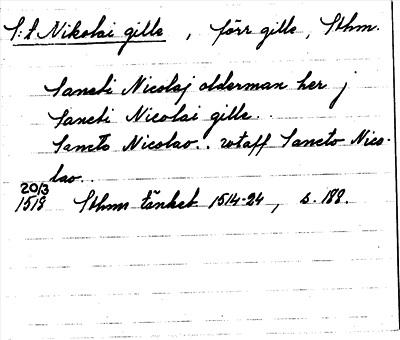 S:t Nikolai gille, förr gille, Sthm.
Sancti Nicolaj olderman her j
Sancti Nicolai gille..
Sancto Nicolao.. wtaff Sancto Nico-
lao..
20/3
1518 Sthms tänkeb 1514-24, s. 188.